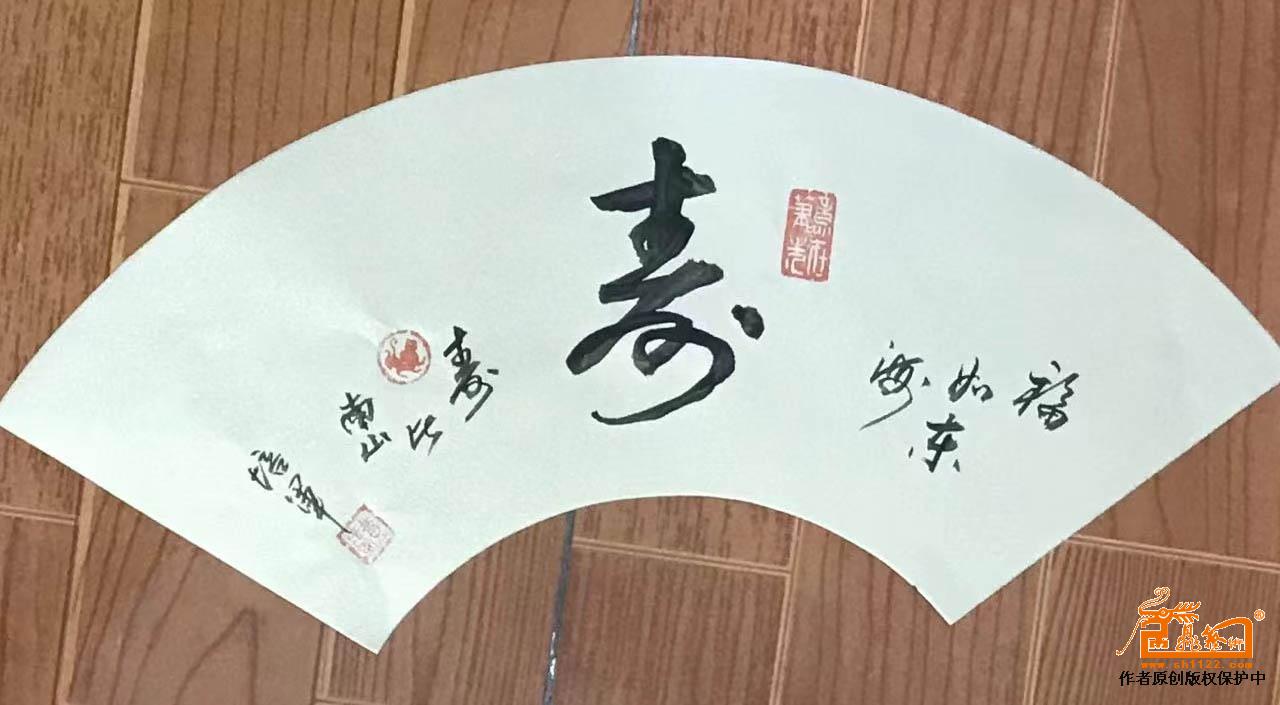 福如东海
寿
寿比南山
www.sh1122.com
作者原创版权保护中